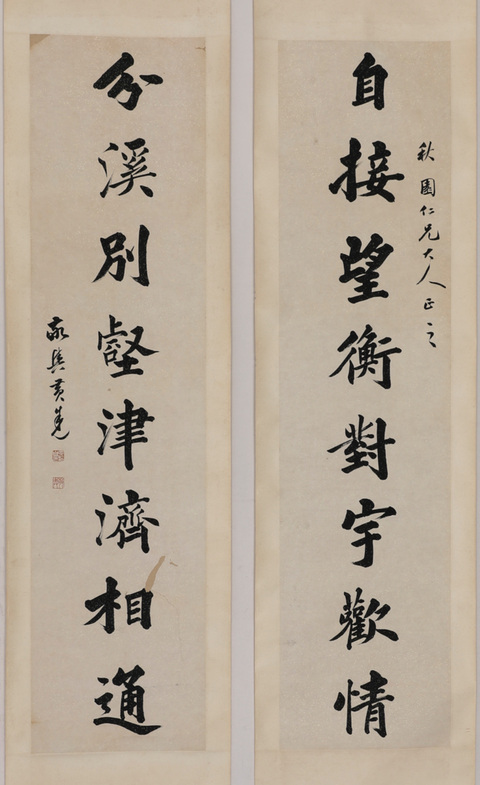 秋園仁兄大人正之
自接望衡對宇歡情
分溪別壑津濟相通
敬輿黃自元